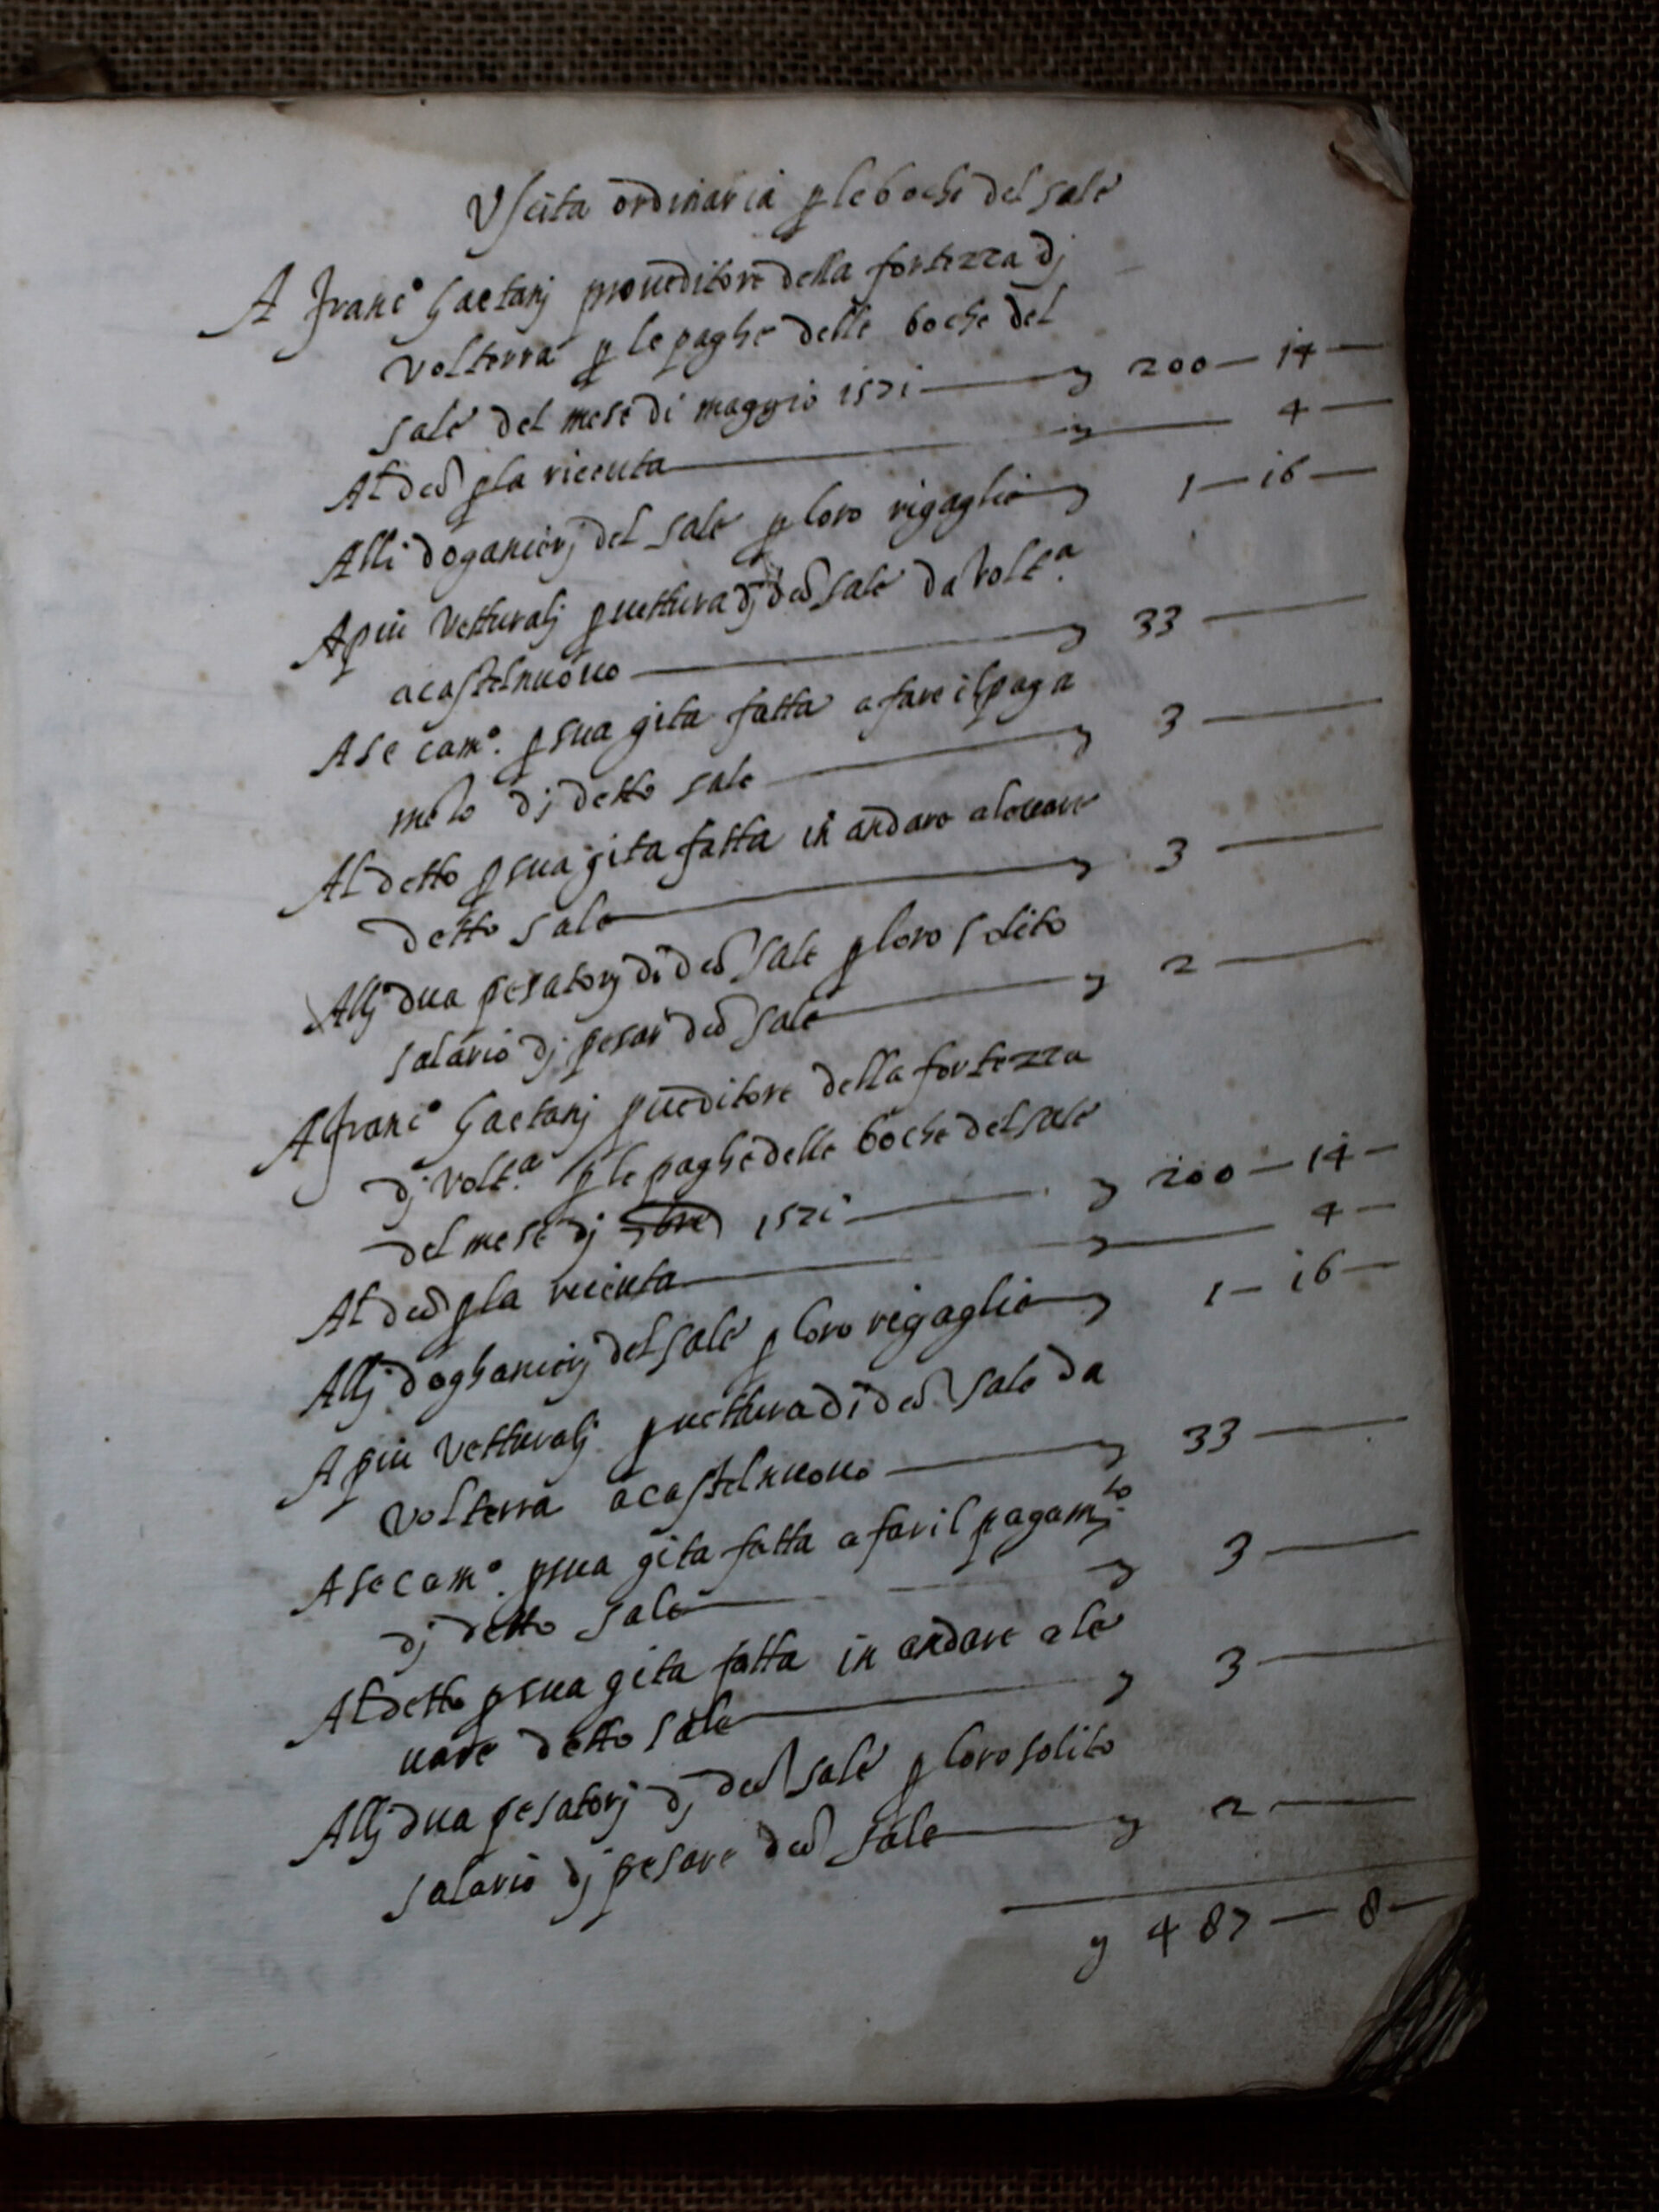 Uscita ordinaria p le boche del sale
A Franc.º Gaetanj proueditore della fortezza dj
Volterra p le paghe delle boche del
sale del mese di maggio 1571 — 200 — 14 —
Al deo p la riceuta — 4 —
Alli doganierj del sale p loro rigaglie 1 — 16 —
A piu Vetturalj p uettura dj deo sale da Volt.ª
a castelnuouo — 33 —
A se cam.º p sua gita fatta a fare il paga
mẽto dj detto sale — 3 —
Al detto p sua gita fatta in andare a leuare
detto sale — 3 —
Allj dua pesatorj di deo sale p loro solito
salario dj pesar deo sale — 2 —
A Franc.º Gaetanj pueditore della fortezza
dj Volt.ª p le paghe delle boche del sale
del mese dj 1571 — 200 — 14 —
Al deo p la riceuta — 4 —
Allj doghanierj del sale p loro rigaglie 1 — 16 —
A piu Vetturalj p uettura di deo sale da
Volterra a castelnuouo — 33 —
A se cam.º p sua gita fatta a far il pagam.to
dj detto sale — 3 —
Al detto p sua gita fatta in andare a le
uare detto sale — 3 —
Allj dua pesatorj dj deo sale p loro solito
salario dj pesare deo sale — 2 —
487 — 8 —